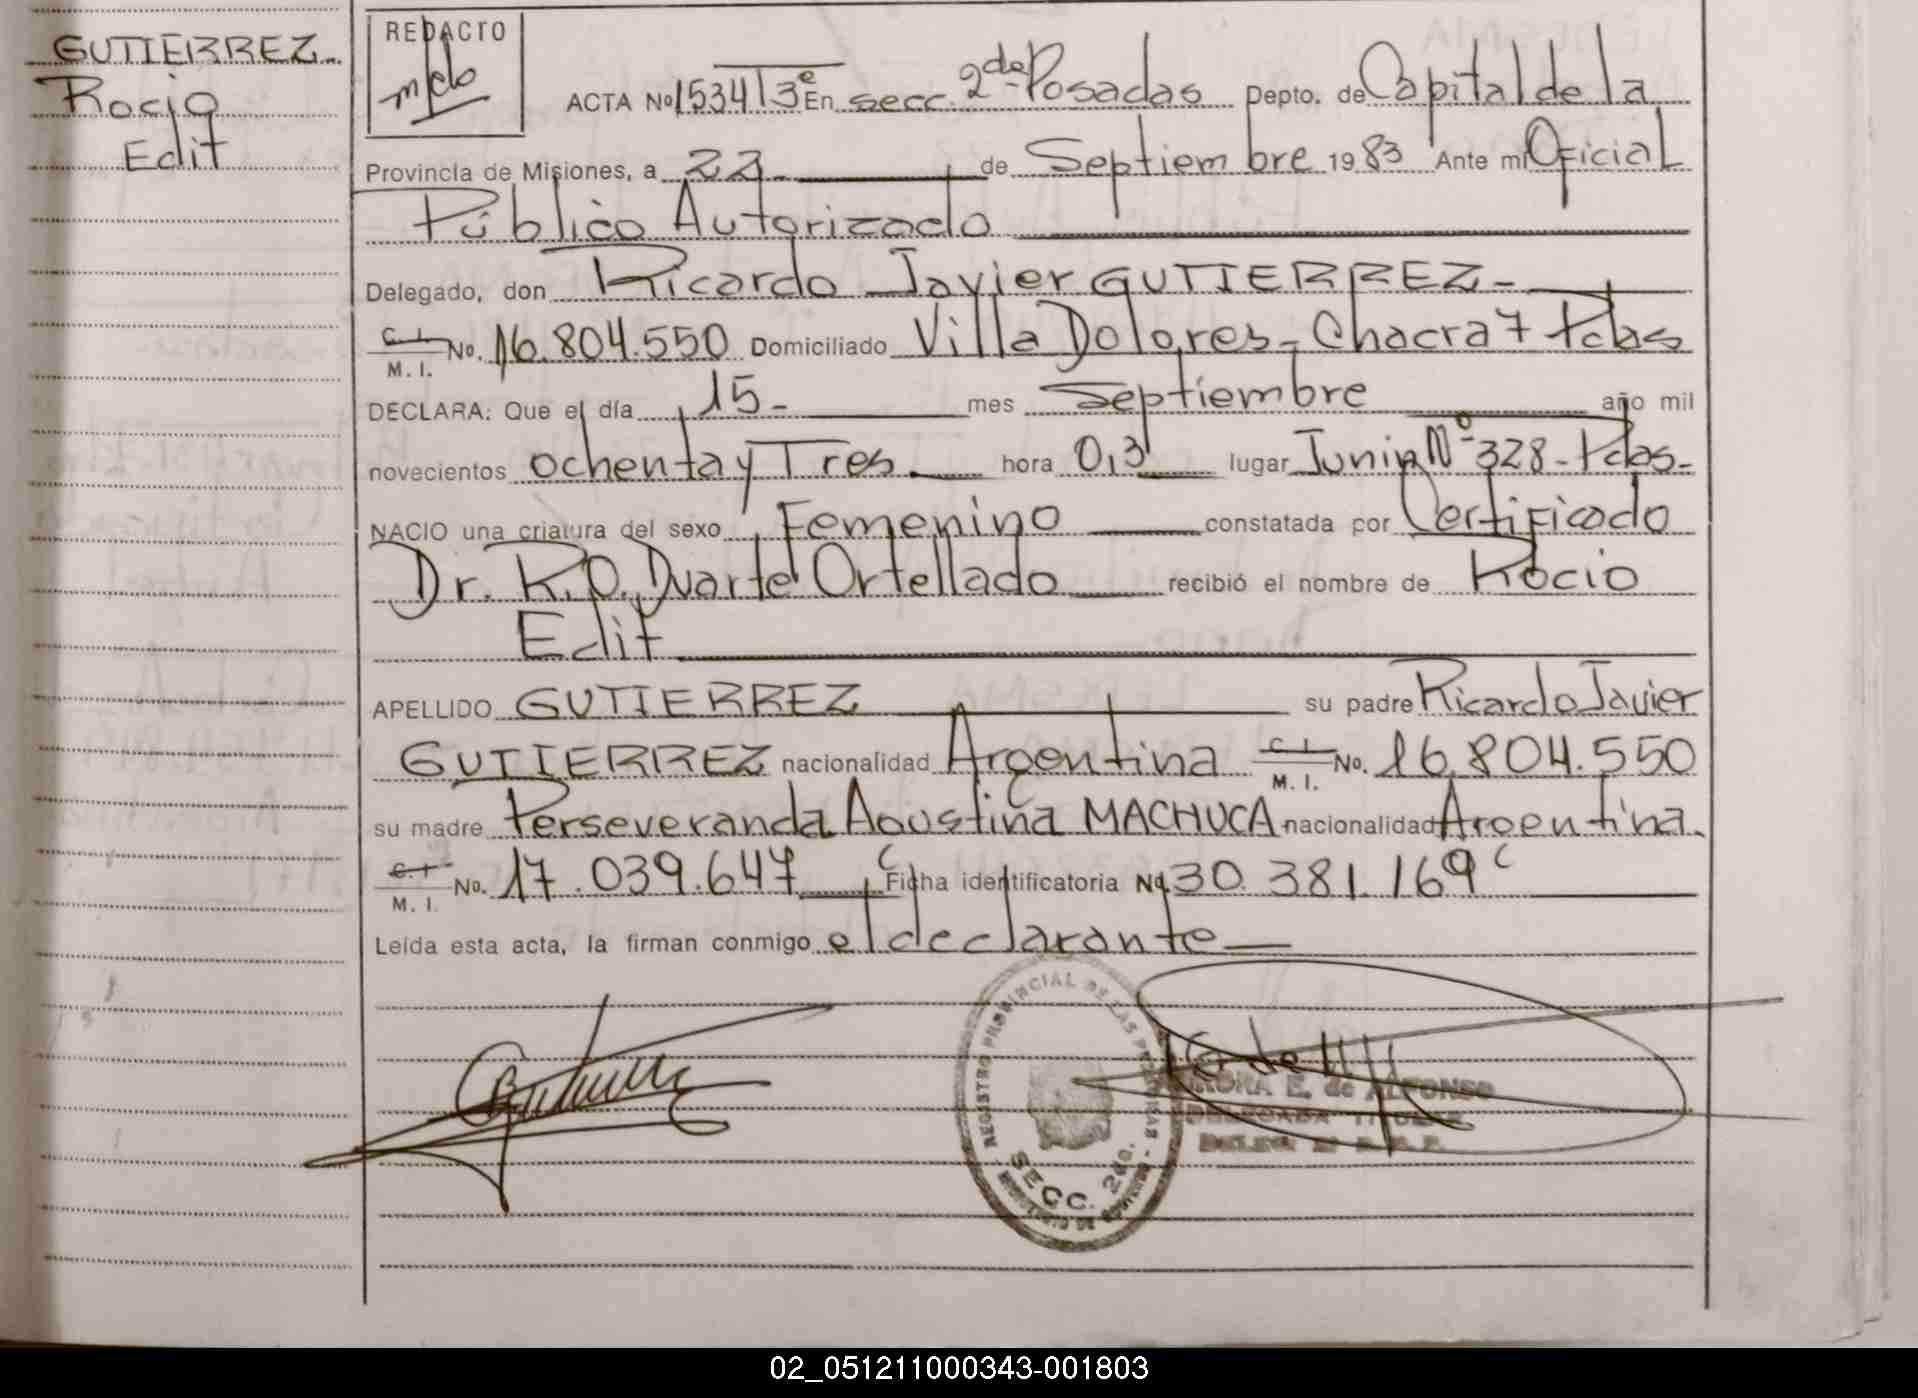 GUTIERREZ
Rocio
Edit
REDACTO
ACTA No 1534 T 3º En secc. 2da Posadas Depto. de Capital de la
Provincia de Misiones, a 22 de Septiembre 1983 Ante mi Oficial
Público Autorizado
Delegado, don Ricardo Javier GUTIERREZ
C. I. M. I. No. 16.804.550 Domiciliado Villa Dolores - Chacra 7 Pdas
DECLARA: Que el día 15 - mes Septiembre año mil
novecientos ochenta y Tres. hora 0,3 lugar Junin Nº 328 - Pdas -
NACIO una criatura del sexo Femenino constatada por Certificado
Dr. R.O. Duarte Ortellado recibió el nombre de Rocio
Edit
APELLIDO GUTIERREZ su padre Ricardo Javier
GUTIERREZ nacionalidad Argentina C. I. M. I. No. 16.804.550
su madre Perseveranda Agustina MACHUCA nacionalidad Argentina
C. I. M. I. No. 17.039.647 Ficha identificatoria No 30.381.169
Leída esta acta, la firman conmigo el declarante
REGISTRO PROVINCIAL DE LAS PERSONAS
SECC. 2da.
E. de ALFONSO
DELEGADA TITULAR
02_051211000343-001803